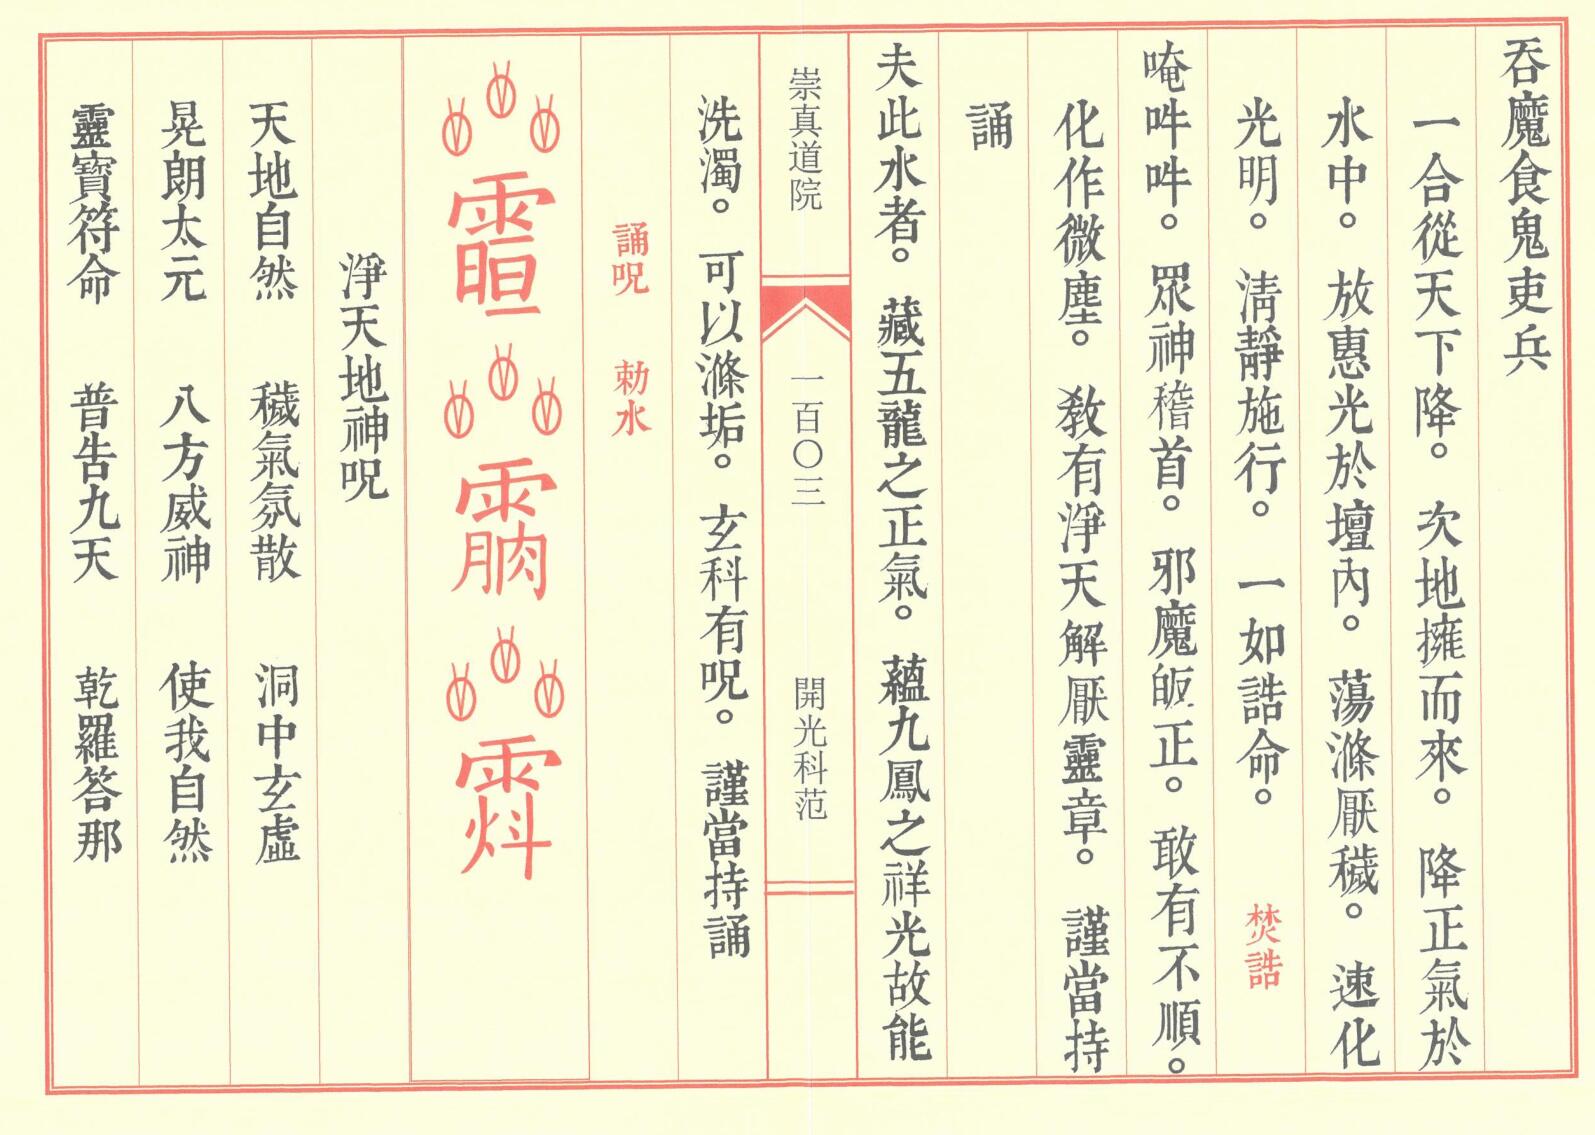 吞魔食鬼吏兵
一合從天下降。次地擁而來。降正氣於
水中。放惠光於壇內。蕩滌厭穢。速化
光明。清靜施行。一如誥命。 焚誥
唵吽吽。眾神稽首。邪魔皈正。敢有不順。
化作微塵。敎有淨天解厭靈章。謹當持
誦
夫此水者。藏五龍之正氣。蘊九鳳之祥光故能
崇真道院 一百〇三 開光科范
洗濁。可以滌垢。玄科有呪。謹當持誦
誦呪 勅水
淨天地神呪
天地自然 穢氣氛散 洞中玄虛
晃朗太元 八方威神 使我自然
靈寶符命 普告九天 乾羅答那